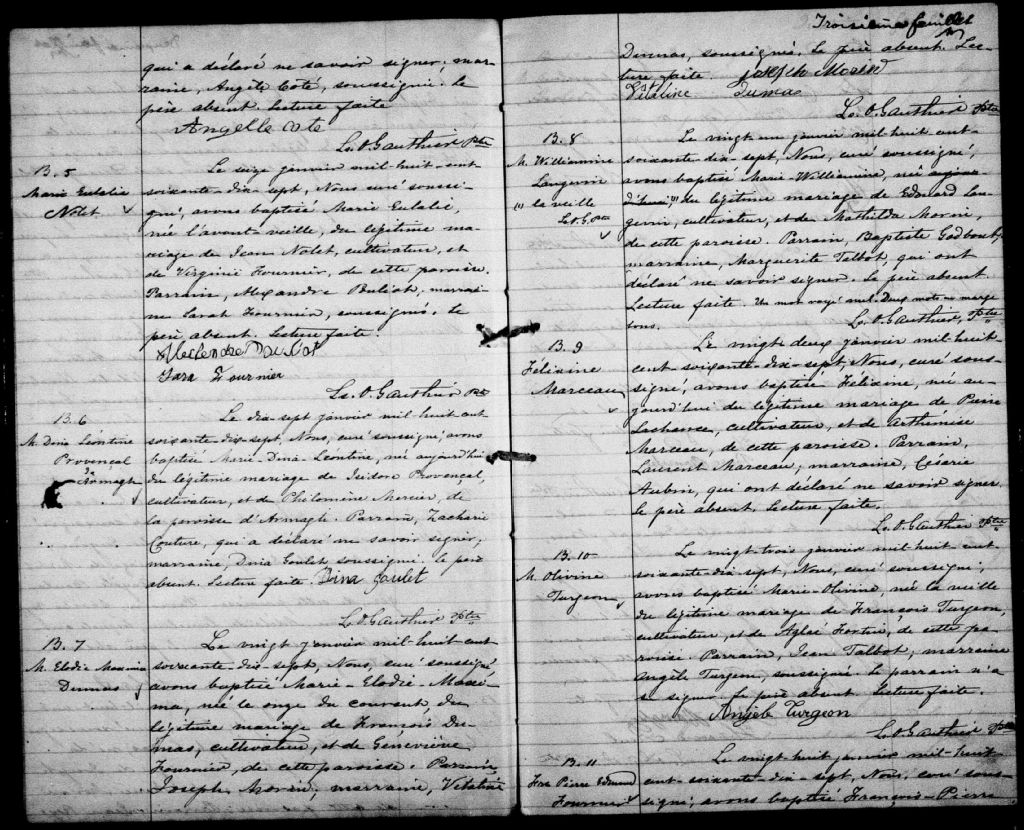 qui a déclaré ne savoir signer; mar-
raine, Angèle Coté, soussignée. le
père absent. Lecture faite
Angelle cote
Ls. O. Gauthier Ptre
B. 5
Marie Eulalie
Nolet
Le seize janvier mil-huit-cent-
soixante-dix-sept, Nous curé soussi-
gné, avons baptisé Marie Eulalie,
née l'avant-veille, du légitime ma-
riage de Jean Nolet, cultivateur, et
de Virginie Fournier, de cette paroisse.
Parrain, Alexandre Buliot, marrai-
ne Sarah Fournier, soussignés. le
père absent. Lecture faite.
Fournier
Ls. O. Gauthier Ptre
B. 6
M. Dina Léontine
Provençal
Armagh
Le dix-sept janvier mil huit cent
soixante-dix-sept, Nous, curé soussigné, avons
baptisé Marie-Dina-Léontine, née aujourd'hui
du légitime mariage de Isidore Provençal,
cultivateur, et de Philomène Mercier, de
la paroisse d'Armagh. Parrain, Zacharie
Couture, qui a déclaré ne savoir signer;
marraine, Dina Goulet soussignée. le père
absent. Lecture faite. Dina goulet
Ls. O. Gauthier Ptre
B. 7
M. Elodie Maxima
Dumas
Le vingt janvier mil-huit cent
soixante-dix-sept, Nous, curé soussigné
avons baptisé Marie-Elodie-Maxi-
ma, née le onze du courant, du
légitime mariage de François Du-
mas, cultivateur, et de Geneviève
Fournier, de cette paroisse. Parrain,
Joseph Morin; marraine, Vitaline
Troisième feuillet
Dumas, soussignés. Le père absent. Lec-
ture faite. joseph Morin
Vitaline Dumas
Ls. O. Gauthier Ptre
B. 8
M. Williamine
Langevin
(") la veille
L. O. G. Ptre
Le vingt-un janvier mil-huit cent-
soixante-dix-sept, Nous, curé soussigné,
avons baptisé Marie-Williamine, née aujour-
d'hui (") du légitime mariage de Edouard Lan-
gevin, cultivateur, et de Mathilda Morin,
de cette paroisse. Parrain, Baptiste Godbout,
marraine, Marguerite Talbot, qui ont
déclaré ne savoir signer. le père absent
Lecture faite. Un mot rayé nul. Deux mots en marge
bons.
Ls. O. Gauthier, Ptre
B. 9
Félixine
Marceau
Le vingt deux janvier mil-huit
cent-soixante-dix-sept, Nous, curé sous-
signé, avons baptisé Félixine, née au-
jourd'hui du légitime mariage de Pierre
Lachance, cultivateur, et de Arthémise
Marceau, de cette paroisse. Parrain,
Laurent Marceau; marraine, Césarie
Aubin, qui ont déclaré ne savoir signer.
le père absent. Lecture faite.
Ls. O. Gauthier Ptre
B. 10
M. Olivine
Turgeon
Le vingt-trois janvier mil-huit cent-
soixante-dix-sept, Nous, curé soussigné,
avons baptisé Marie-Olivine, née la veille
du légitime mariage de François Turgeon,
cultivateur, et de Aglaé Fortin, de cette pa-
roisse. Parrain, Jean Talbot; marraine
Angèle Turgeon, soussignée. le parrain n'a
su signer. Le père absent. Lecture faite.
Angèle Turgeon
Ls. O. Gauthier, Ptre
B. 11
Frs Pierre Edmond
Fournier
Le vingt-huit janvier mil-huit-
cent-soixante-dix-sept, Nous, curé sous-
signé, avons baptisé François-Pierre